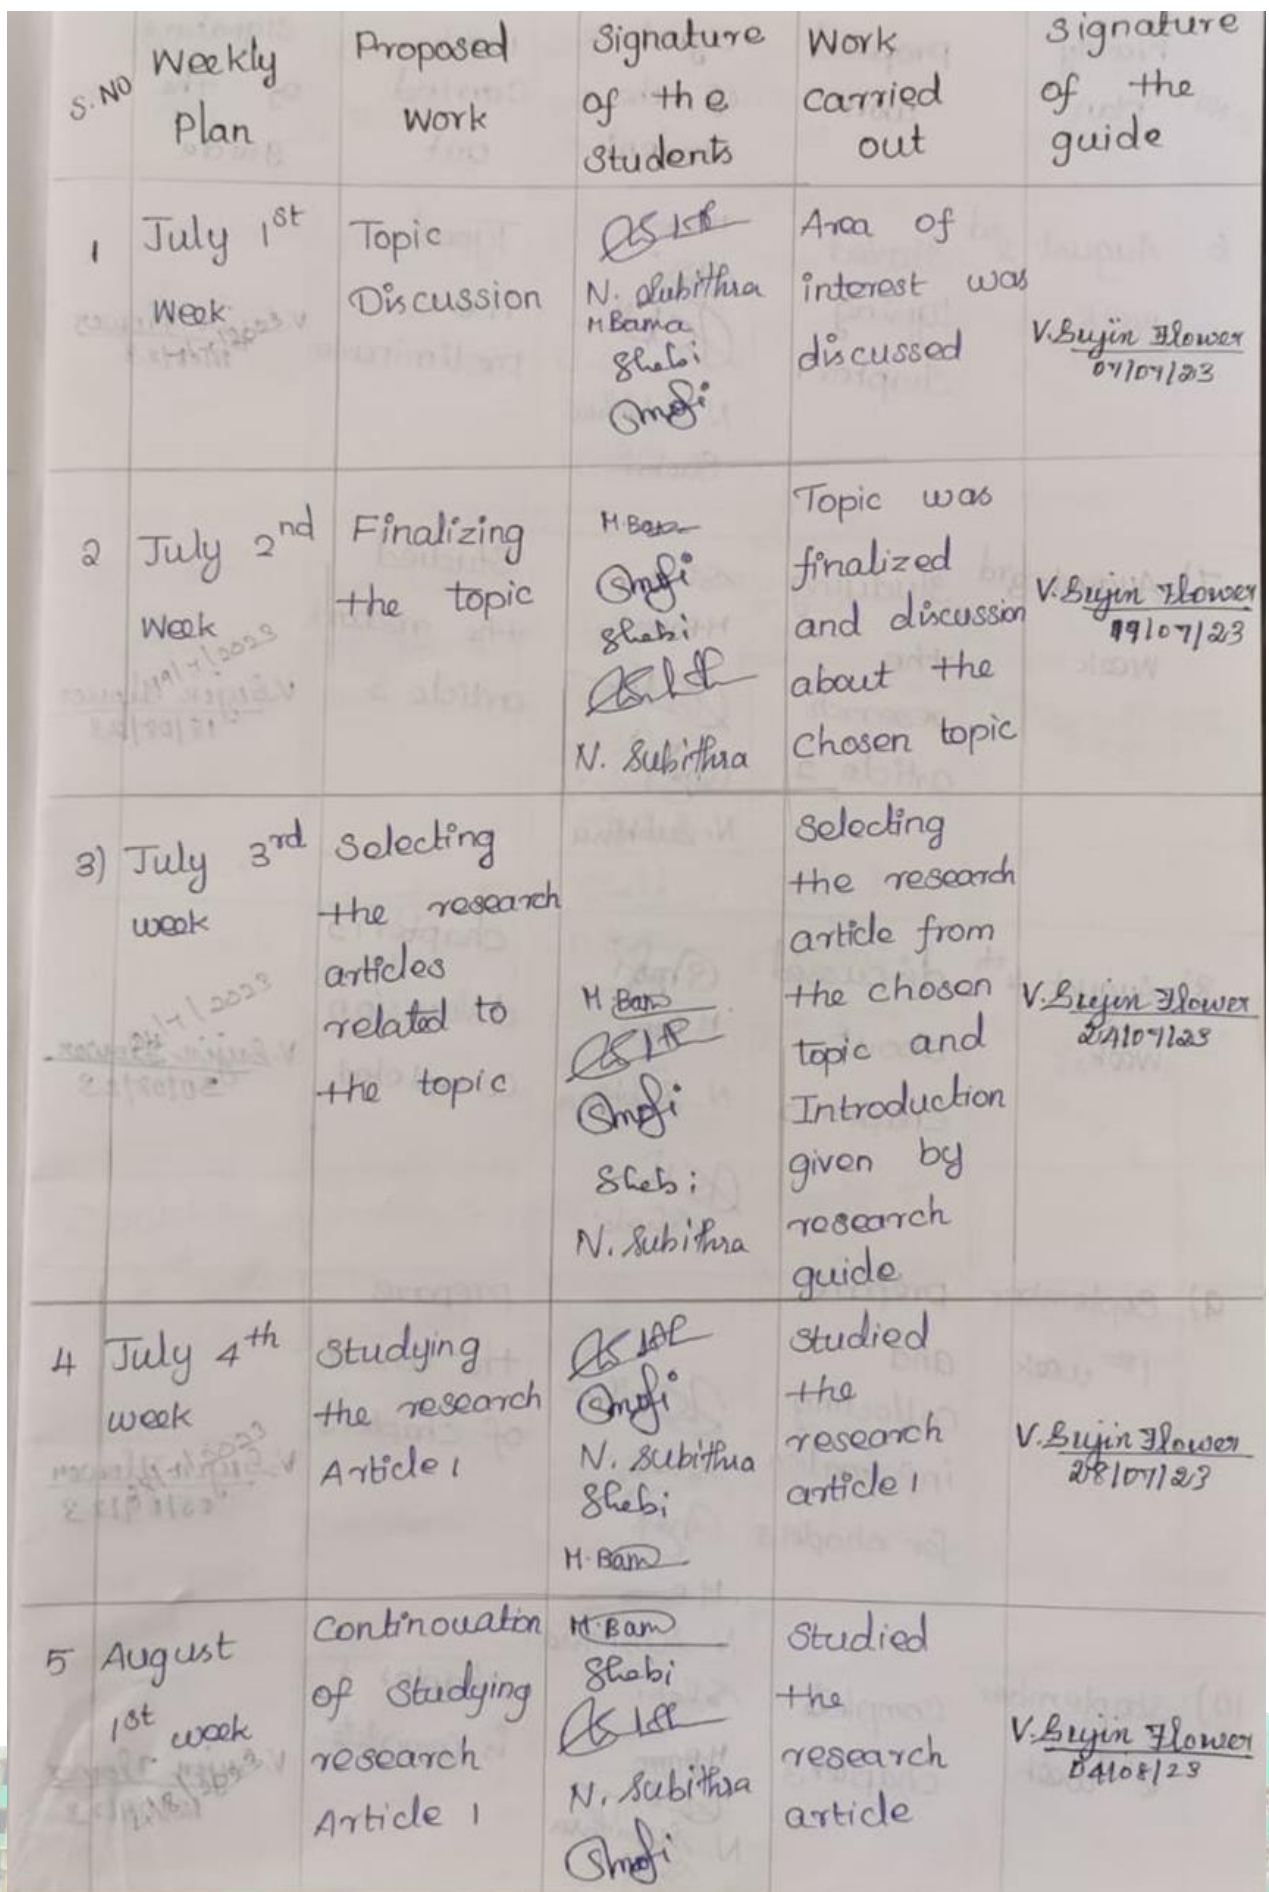 S. NO
Weekly
Plan
Proposed
Work
Signature
of the
Students
Work
carried
out
Signature
of the
guide
1
July 1st
Week
Topic
Discussion
N. Subithra
M Bama
Shebi
Area of
interest was
discussed
V. Sujin Flower
07/07/23
2
July 2nd
Week
/7/2023
Finalizing
the topic
M. Bam
Shebi
N. Subithra
Topic was
finalized
and discussion
about the
Chosen topic
V. Sujin Flower
19/07/23
3)
July 3rd
week
/7/2023
Selecting
the research
articles
related to
the topic
M Bam
Shebi
N. Subithra
Selecting
the research
article from
the chosen
topic and
Introduction
given by
research
guide
V. Sujin Flower
24/07/23
4
July 4th
week
Studying
the research
Article 1
N. Subithra
Shebi
M. Bam
Studied
the
research
article 1
V. Sujin Flower
28/07/23
5
August
1st week
Continouation
of Studying
research
Article 1
M. Bam
Shebi
N. Subithra
Studied
the
research
article
V. Sujin Flower
04/08/23